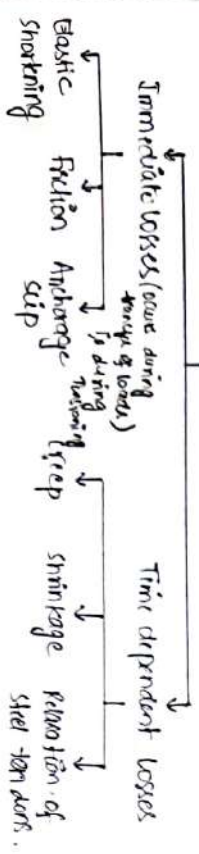 Immediate losses (occurs during
transfer of loads)
is during
Tensioning
Time dependent losses
Elastic
shortening
Friction
Anchorage
slip
Creep
shrinkage
Relaxation of
steel tendons.